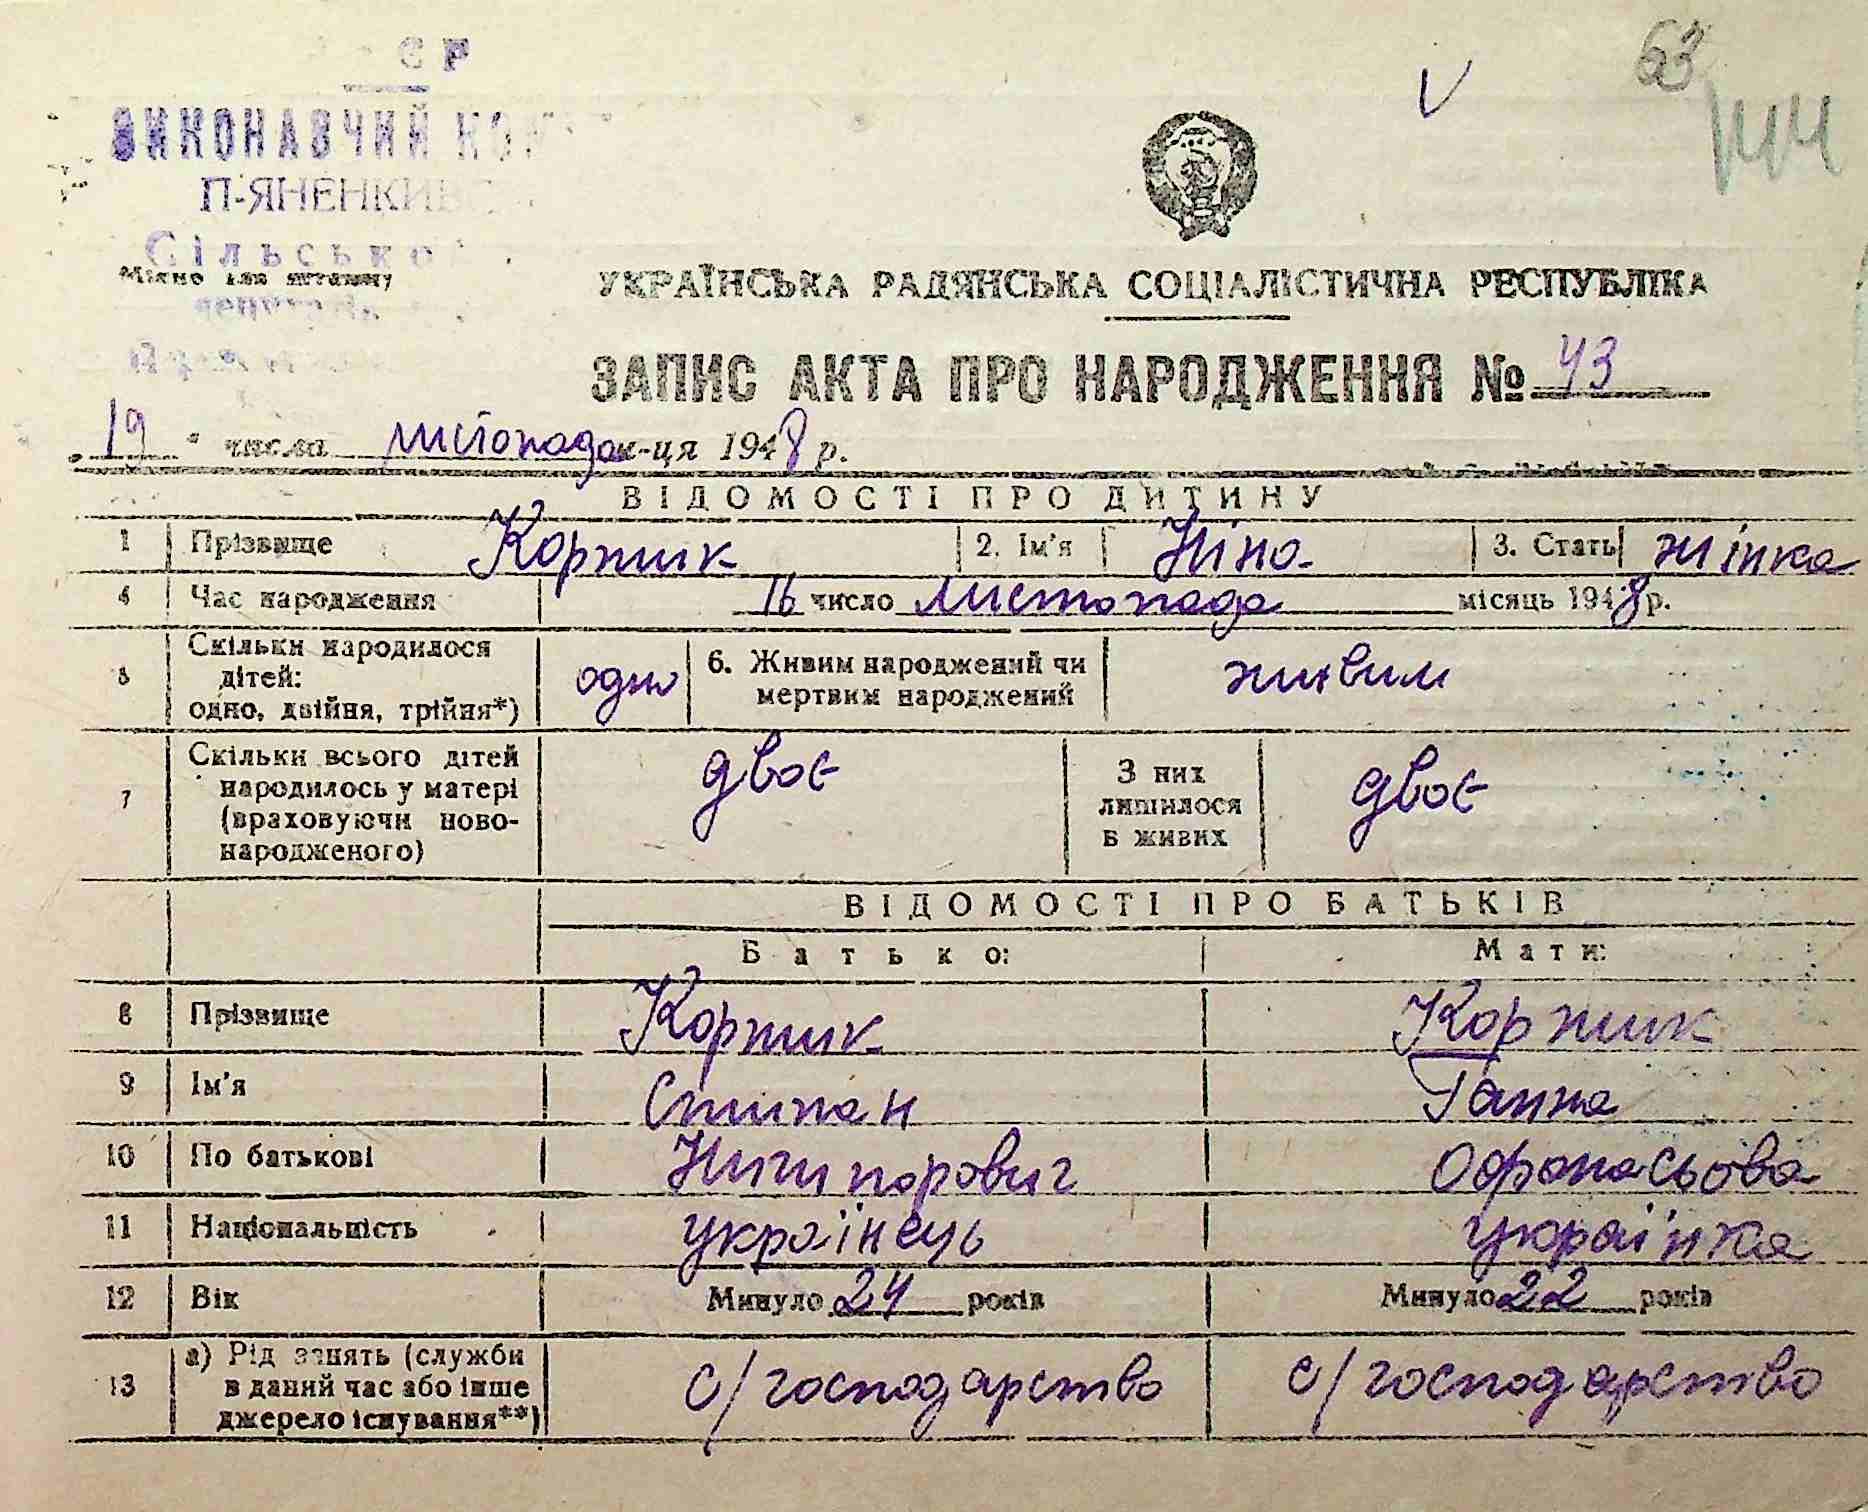 СР
63
ВИКОНАВЧИЙ
П-ЯНЕНКИВС
Сільсько
Місце для штампу
УКРАЇНСЬКА РАДЯНСЬКА СОЦІАЛІСТИЧНА РЕСПУБЛІКА
ЗАПИС АКТА ПРО НАРОДЖЕННЯ № 43
„19“ числа листопада м-ця 1948 р.
ВІДОМОСТІ ПРО ДИТИНУ
1 Прізвище Коржик 2. Ім'я Ніна 3. Стать жінка
4 Час народження 16 число листопада місяць 1948 р.
5 Скільки народилося
дітей:
одно, двійня, трійня*) одно
6. Живим народжений чи
мертвим народжений живим
7 Скільки всього дітей
народилось у матері
(враховуючи ново-
народженого) двоє
З них
лишилося
в живих двоє
ВІДОМОСТІ ПРО БАТЬКІВ
Батько: Мати:
8 Прізвище Коржик Коржик
9 Ім'я Стипан Ганна
10 По батькові Ничипорович Офанасьова
11 Національність українець українка
12 Вік Минуло 24 років Минуло 22 років
13 а) Рід занять (служби
в даний час або інше
джерело існування**) с/господарство с/господарство